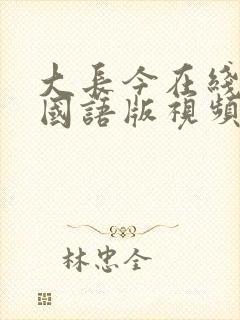 大長今在綫
國語版視頻
林忠全